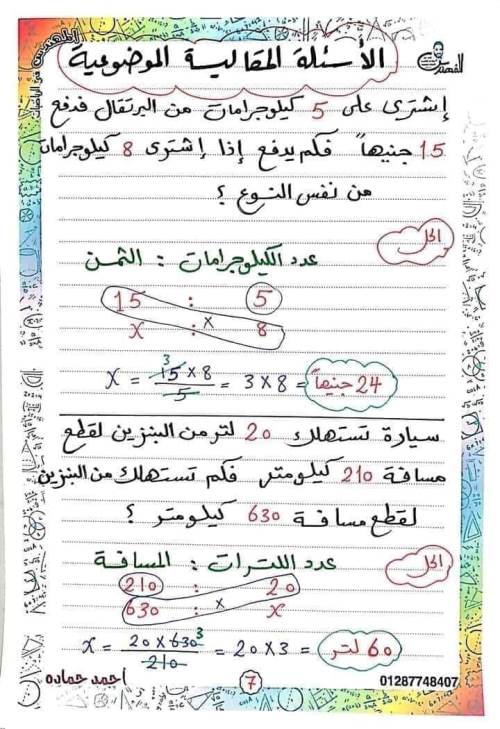 المهندس في الرياضيات
الأسئلة المقالية الموضوعية
إشترى على 5 كيلوجرامات من البرتقال فدفع
15 جنيهاً فكم يدفع إذا إشترى 8 كيلوجرامات
من نفس النوع ؟
الحل
عدد الكيلوجرامات : الثمن
5 : 15
8 : x
x = 15 × 8 / 5 = 3 × 8 = 24 جنيهاً
سيارة تستهلك 20 لتر من البنزين لقطع
مسافة 210 كيلومتر فكم تستهلك من البنزين
لقطع مسافة 630 كيلومتر ؟
الحل
عدد اللترات : المسافة
20 : 210
x : 630
x = 20 × 630 / 210 = 20 × 3 = 60 لتر
01287748407
7
احمد حماده